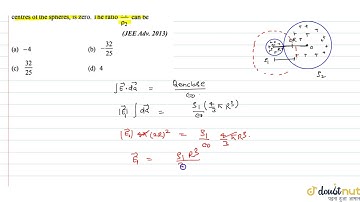 centres of the spheres, is zero. The ratio ρ₁/ρ₂ can be
(JEE Adv. 2013)
(a) −4 (b) −32/25
(c) 32/25 (d) 4
2R
R
S₁
S₂
∫E⃗·da⃗ = qenclose/ε₀
|E⃗₁| ∫da⃗ = ρ₁/ε₀ (4/3 π R³)
|E⃗₁| 4π(2R)² = ρ₁/ε₀ 4/3 π R³.
E⃗₁ = ρ₁R³
doubtnut